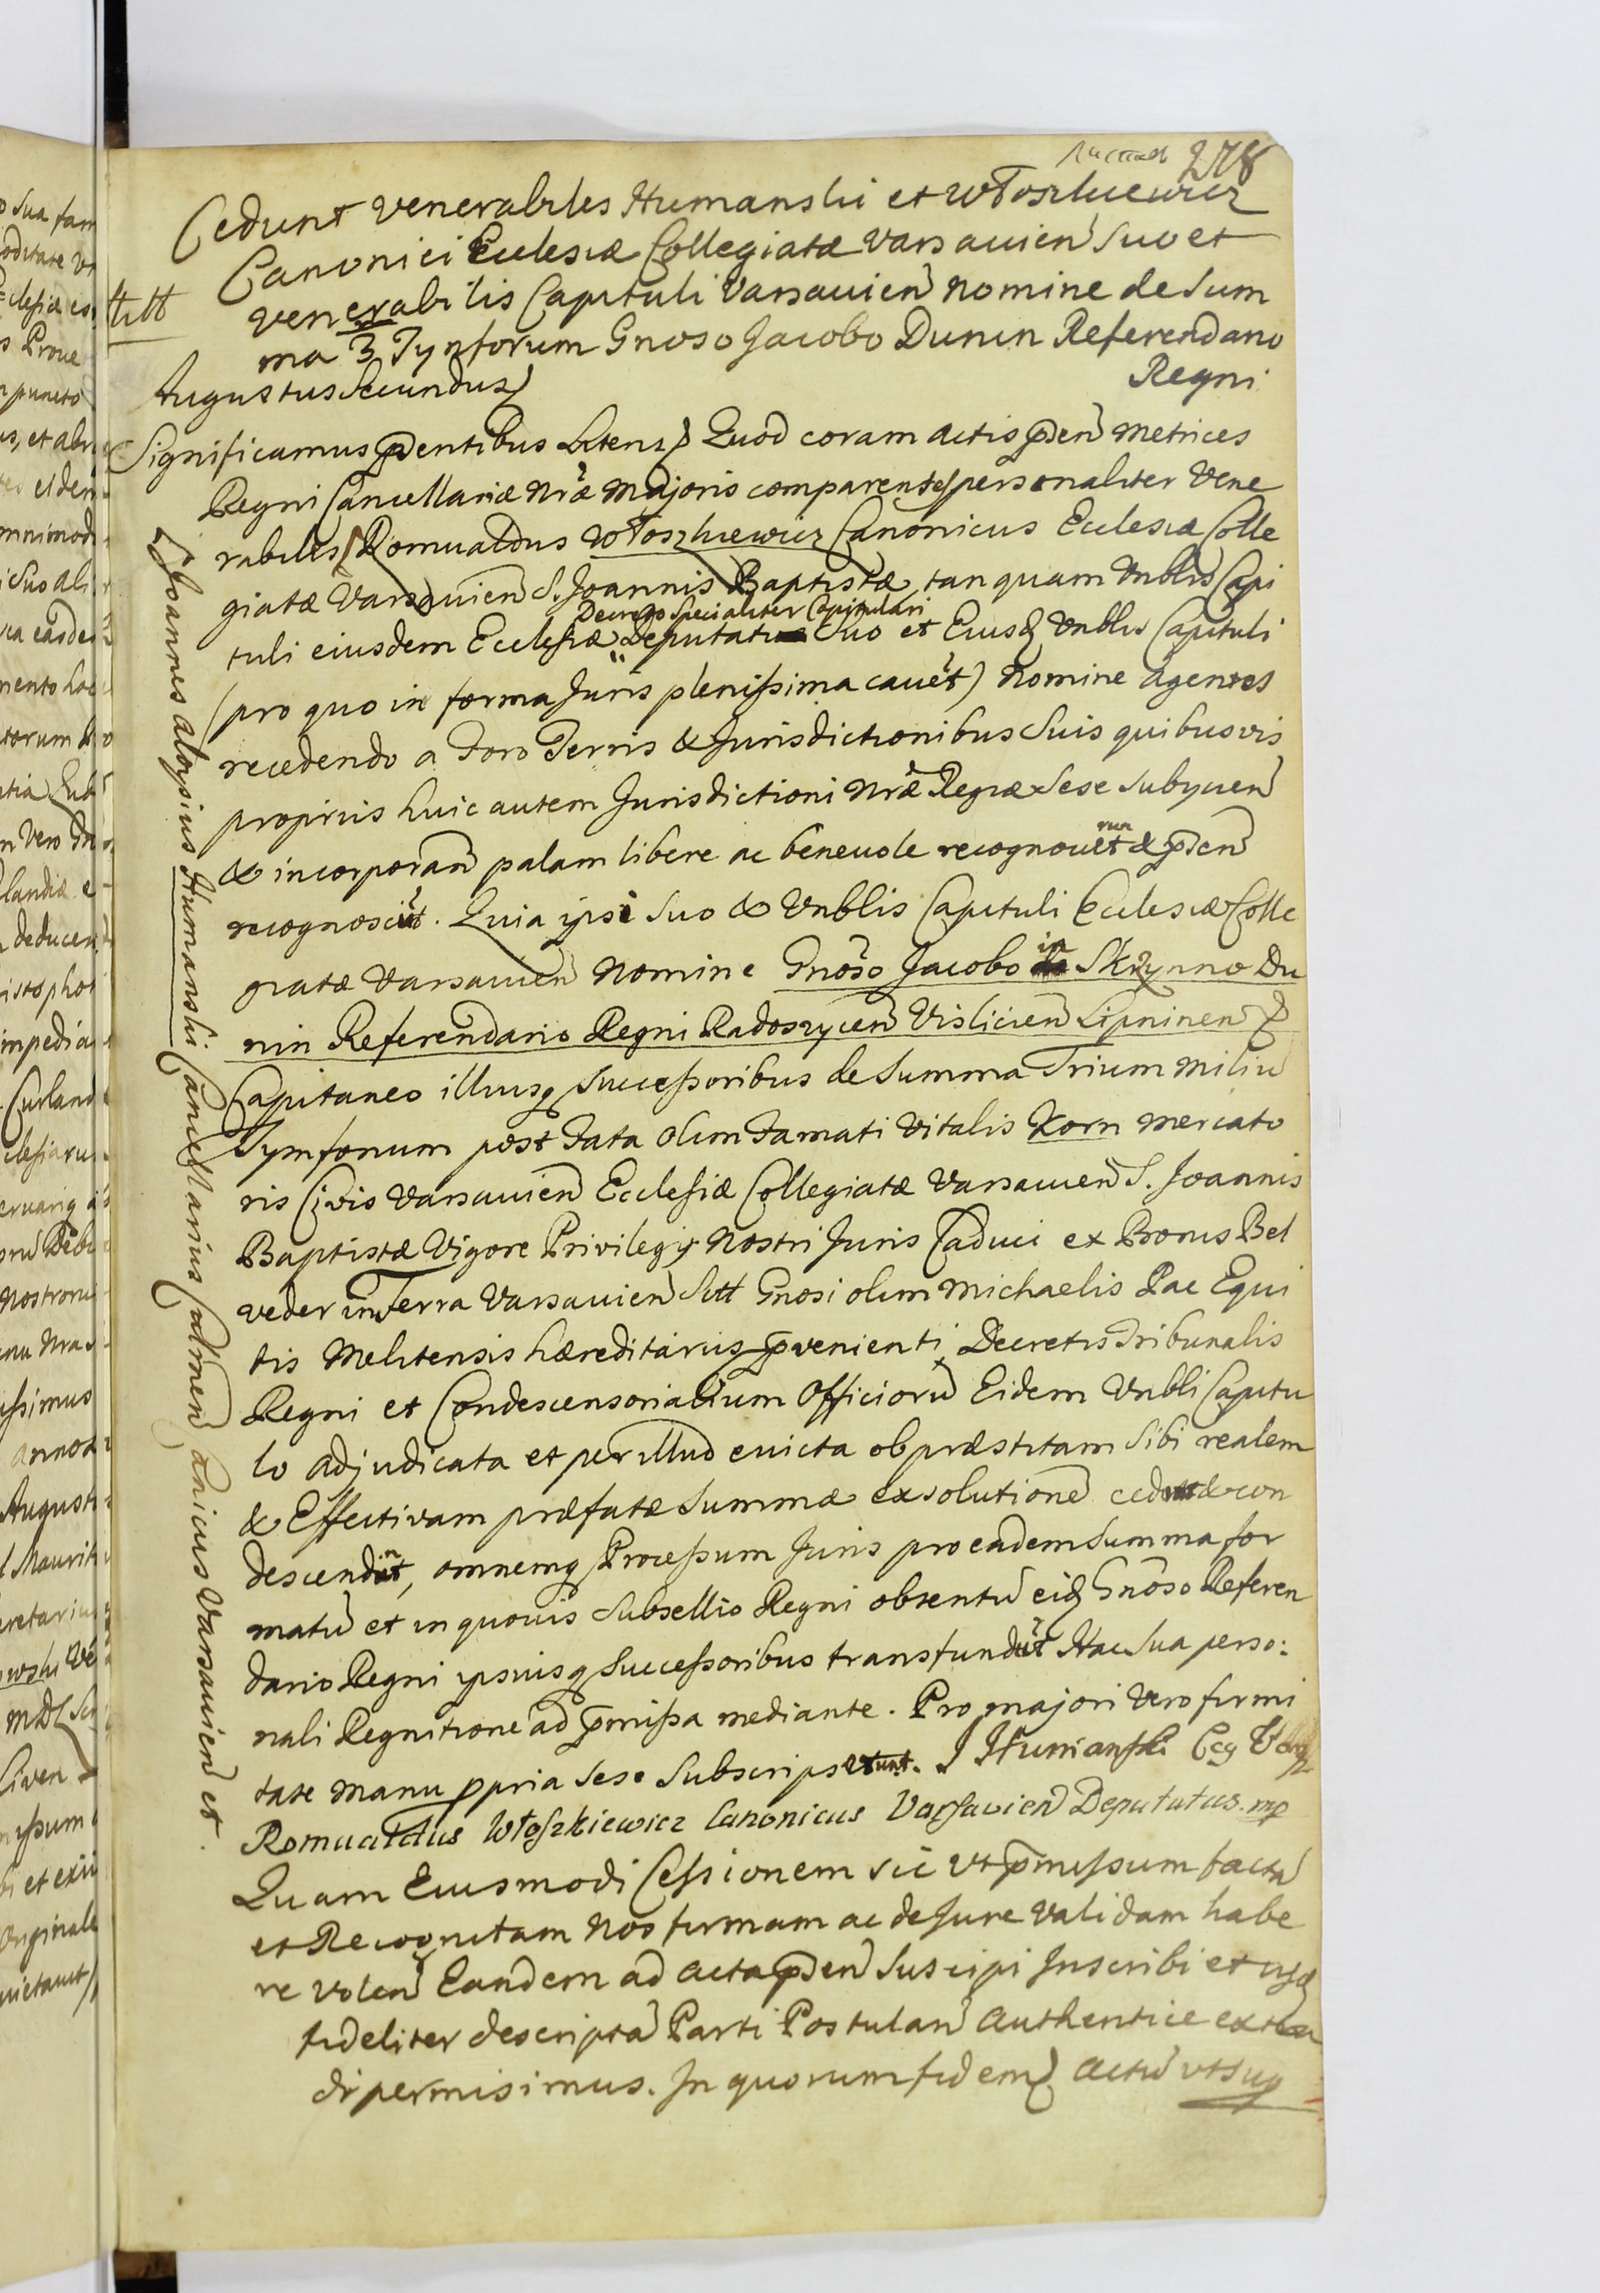 278
Cedunt Venerabiles Humanski et Włoszkiewicz
Canonici Ecclesiæ Collegiatæ Varsavien Suo et
Venerabilis Capituli Varsavien Nomine de Sum
ma 3 Tynforum Gnoso Jacobo Dunin Referendario
Regni
Augustus Secundus
Significamus pntibus Literis Quod coram Actis pnten Metrices
Regni Cancellariæ Nræ Majoris comparentes personaliter Vene
rabiles Romualdus Włoszkiewicz Canonicus Ecclesiæ Colle
giatæ Varsavien S. Joannis Baptistæ tanquam Vnblis Capi
Decreto Specialiter Capitulari
tuli eiusdem Ecclesiæ Deputatus Suo et Eiusq Vnblis Capituli
(pro quo in forma Juris plenissima cavet) Nomine Agentes
recedendo a Foro Terris & Jurisdictionibus Suis quibusvis
proprÿs huic autem Jurisdictioni Nræ Regiæ Sese Subÿcien
run
& incorporan palam libere ac benevole recognovet & pnten
recognoscut. Quia ipsi Suo & Vnblis Capituli Ecclesiæ Colle
in
giatæ Varsavien Nomine Gnoso Jacobo de Skrzynno Du
nin Referendario Regni Radoszycen Vislicien Lipninen
Capitaneo illiusq Successoribus de Summa Trium Miliu
Tymforum post Fata olim Famati Vitalis Korn Mercato
ris Civis Varsavien Ecclesiæ Collegiatæ Varsavien S. Joannis
Baptistæ Vigore Privilegÿ Nostri Juris Caduci ex Bonis Bel
veder in Terra Varsavien Sitt Gnosi olim Michaelis Pac Equi
tis Melitensis hæreditarÿs pvenienti Decretis Tribunalis
Regni et Condescensorialium Officioru Eidem Vnbli Capitu
lo Adjudicata et per illud evicta ob præstitam Sibi realem
& Effectivam præfatæ Summæ exsolutione cedut & con
n
descendut, omnemq Processum Juris pro eadem Summa for
matu et in quovis Subsellio Regni obtentu eiq Gnoso Referen
dario Regni ipsiusq Successoribus transfundut Hac Sua perso:
nali Regnitione ad pmissa mediante. Pro majori Vero firmi
tate Manu ppria Sese Subscripserunt. J Humanski
Romualdus Włoszkiewicz Canonicus Varsavien Deputatus. mp
Quam Eiusmodi Cessionem sic Vt pmissum facta
et Recognitam Nos firmam ac de Jure Validam habe
re Volen Eandem ad Acta pnten Suscipi Inscribi et
fideliter descripta Parti Postulan Authentice extra
di permisimus. In quorum fidem Actu vt Sup
Joannes Aloysius Humanski Cancellarius Culmen Canonicus Varsavien et